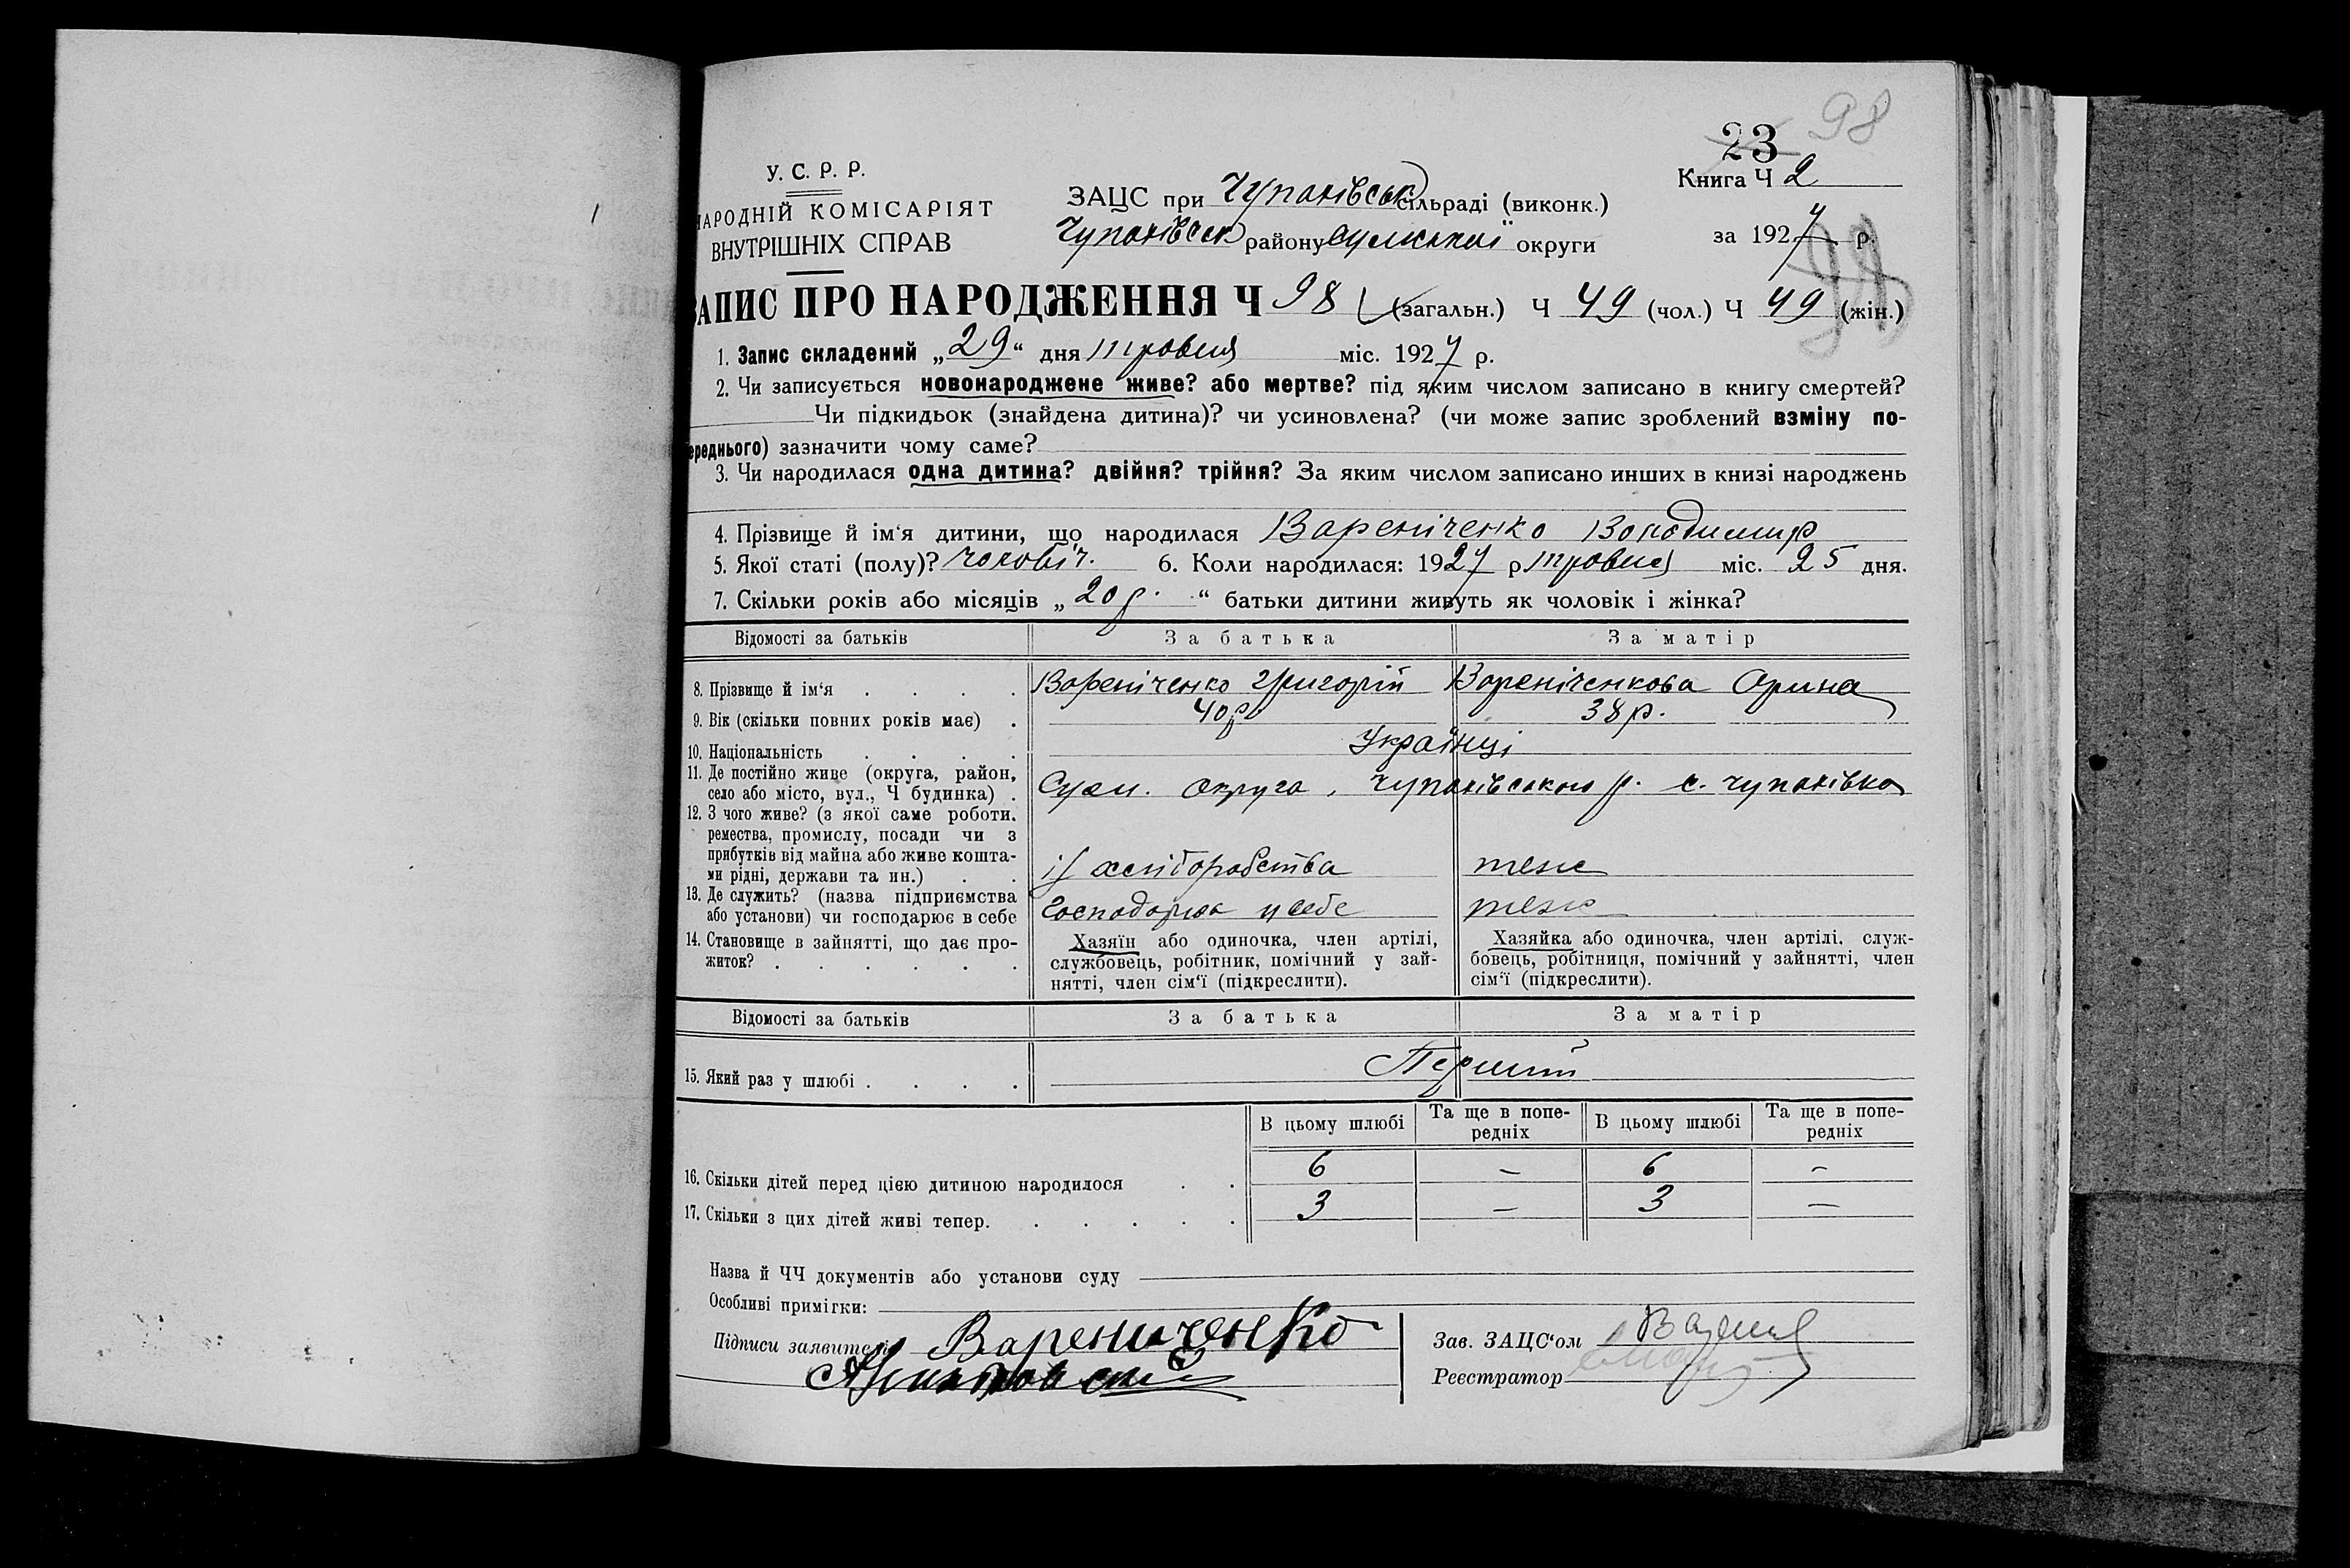 98
23
У. С. Р. Р.
НАРОДНІЙ КОМІСАРІЯТ
ВНУТРІШНІХ СПРАВ
ЗАЦС при Чупахівськ сільраді (виконк.)
Чупахівськ району Сумської округи
Книга Ч 2
за 1927 р.
98
ЗАПИС ПРО НАРОДЖЕННЯ Ч 98 (загальн.) Ч 49 (чол.) Ч 49 (жін.)
1. Запис складений „29“ дня травня міс. 1927 р.
2. Чи записується новонароджене живе? або мертве? під яким числом записано в книгу смертей?
Чи підкидьок (знайдена дитина)? чи усиновлена? (чи може запис зроблений взміну по-
ереднього) зазначити чому саме?
3. Чи народилася одна дитина? двійня? трійня? За яким числом записано инших в книзі народжень
4. Прізвище й ім‘я дитини, що народилася Вареніченко Володимир
5. Якої статі (полу)? чоловіч. 6. Коли народилася: 1927 р травня міс. 25 дня.
7. Скільки років або місяців „20 р.“ батьки дитини живуть як чоловік і жінка?
Відомості за батьків За батька За матір
8. Прізвище й ім‘я Вареніченко Григорій Вареніченкова Орина
9. Вік (скільки повних років має) 40р 38р.
10. Національність Українці
11. Де постійно живе (округа, район,
село або місто, вул., Ч будинка) Сум. округа, Чупахівського р. с. Чупахівка
12. З чого живе? (з якої саме роботи,
ремества, промислу, посади чи з
прибутків від майна або живе кошта-
ми рідні, держави та ин.) із хліборобства теж
13. Де служить? (назва підприємства
або установи) чи господарює в себе господарює у себе теж
14. Становище в зайнятті, що дає про-
житок?
Хазяїн або одиночка, член артілі,
службовець, робітник, помічний у зай-
нятті, член сім‘ї (підкреслити).
Хазяйка або одиночка, член артілі, служ-
бовець, робітниця, помічний у зайнятті, член
сім‘ї (підкреслити).
Відомості за батьків За батька За матір
15. Який раз у шлюбі Перший
В цьому шлюбі Та ще в попе-
редніх В цьому шлюбі Та ще в попе-
редніх
16. Скільки дітей перед цією дитиною народилося 6 – 6 –
17. Скільки з цих дітей живі тепер. 3 – 3 –
Назва й ЧЧ документів або установи суду
Особливі примігки:
Підписи заявителі Варениченко
Зав. ЗАЦС‘ом
Реєстратор